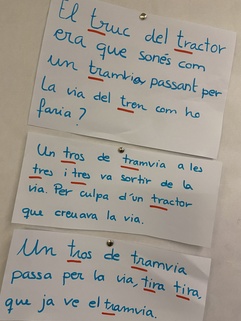 El truc del tractor
era que sonés com
un tramvia passant per
la via del tren com ho
faria?
Un tros de tramvia a les
tres i tres va sortir de la
via. Per culpa d'un tractor
que creuava la via.
Un tros de tramvia
passa per la via, tira tira,
que ja ve el tramvia.